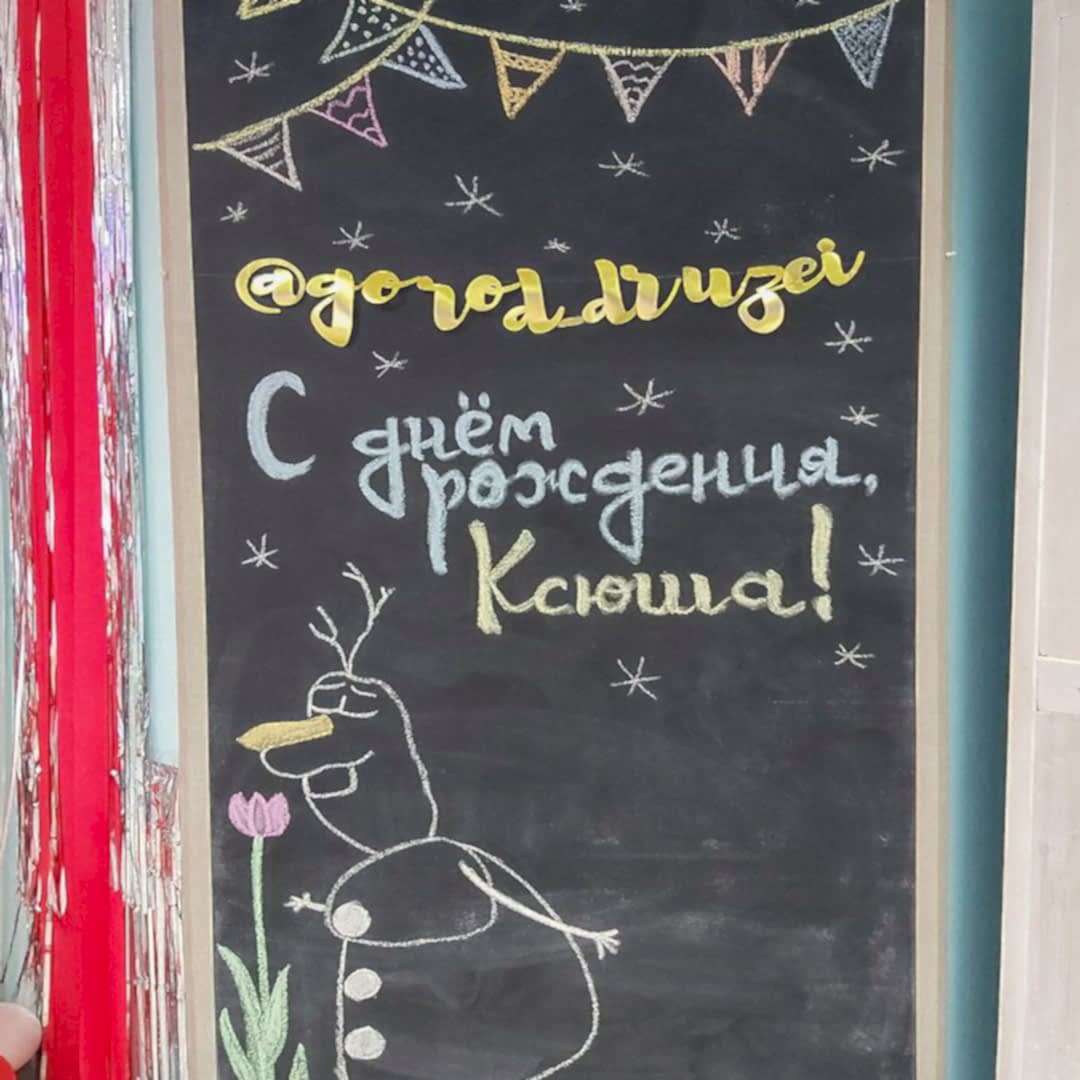 @gorod_druzei
С днём
рождения,
Ксюша!